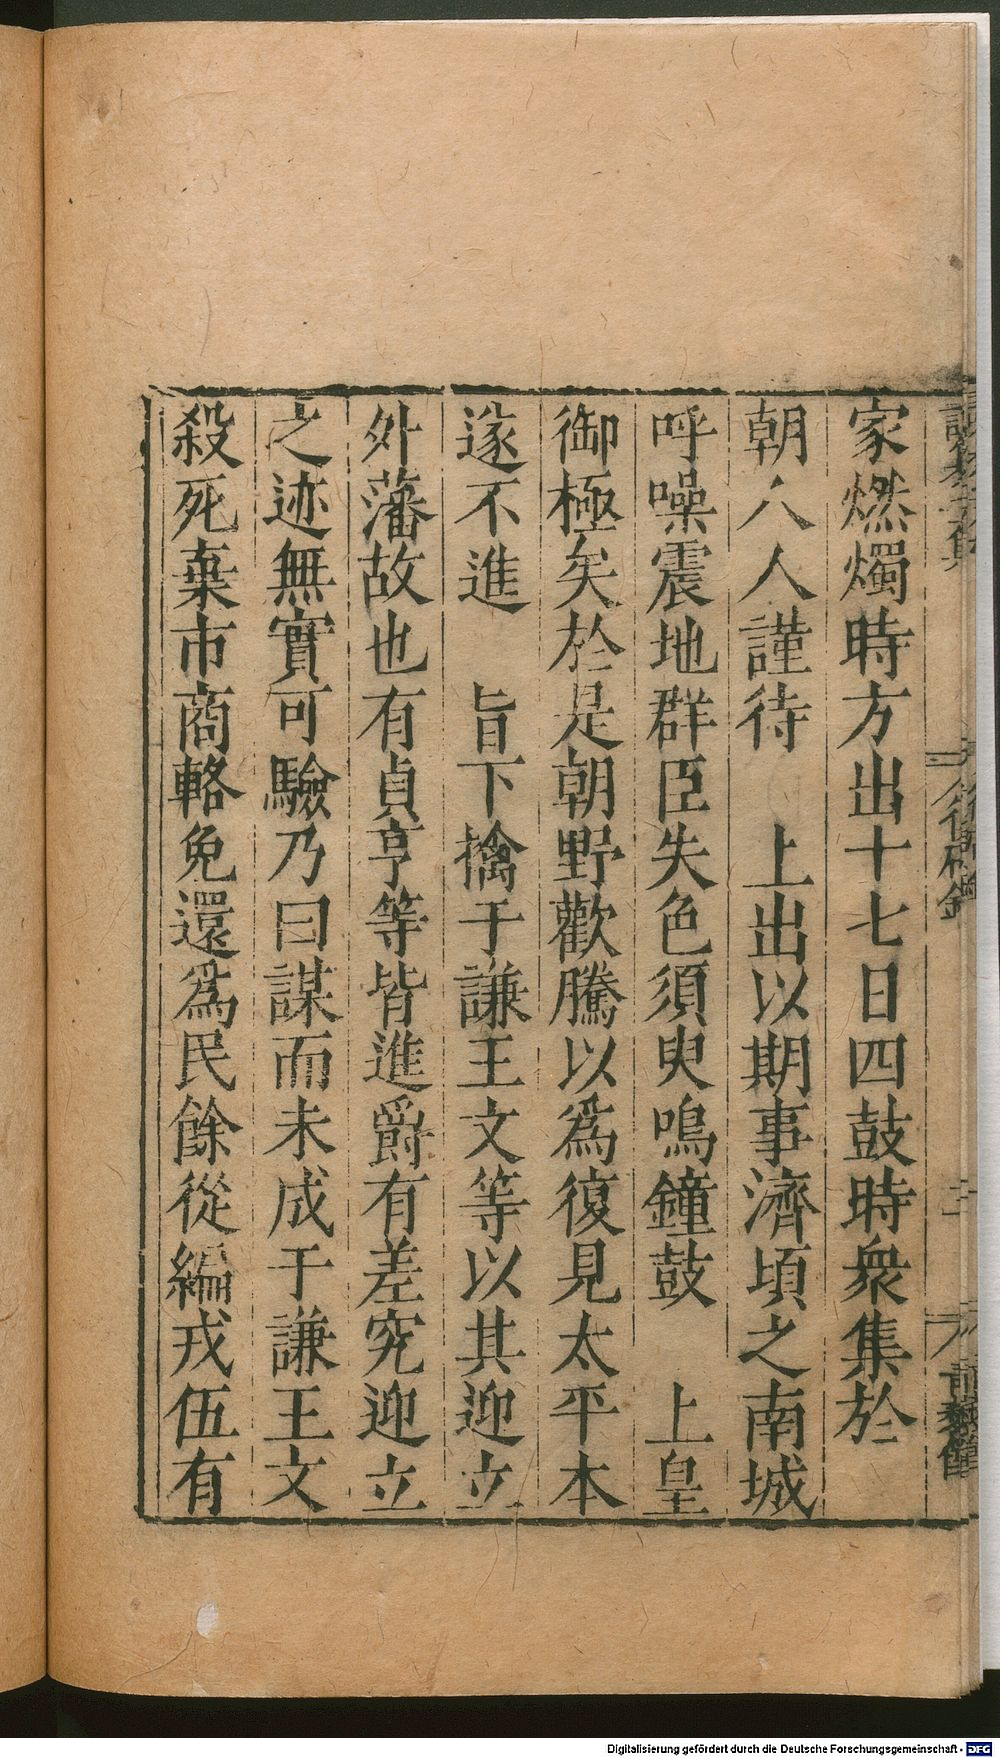 家燃燭時方出十七日四鼓時衆集於
朝八人謹待　上出以期事濟頃之南城
呼噪震地群臣失色須臾鳴鐘鼓　上皇
御極矣於是朝野歡騰以爲復見太平本
遂不進　旨下擒于謙王文等以其迎立
外藩故也有貞亨等皆進爵有差究迎立
之迹無實可驗乃曰謀而未成于謙王文
殺死棄市商輅免還爲民餘從編戎伍有
Digitalisierung gefördert durch die Deutsche Forschungsgemeinschaft - DFG